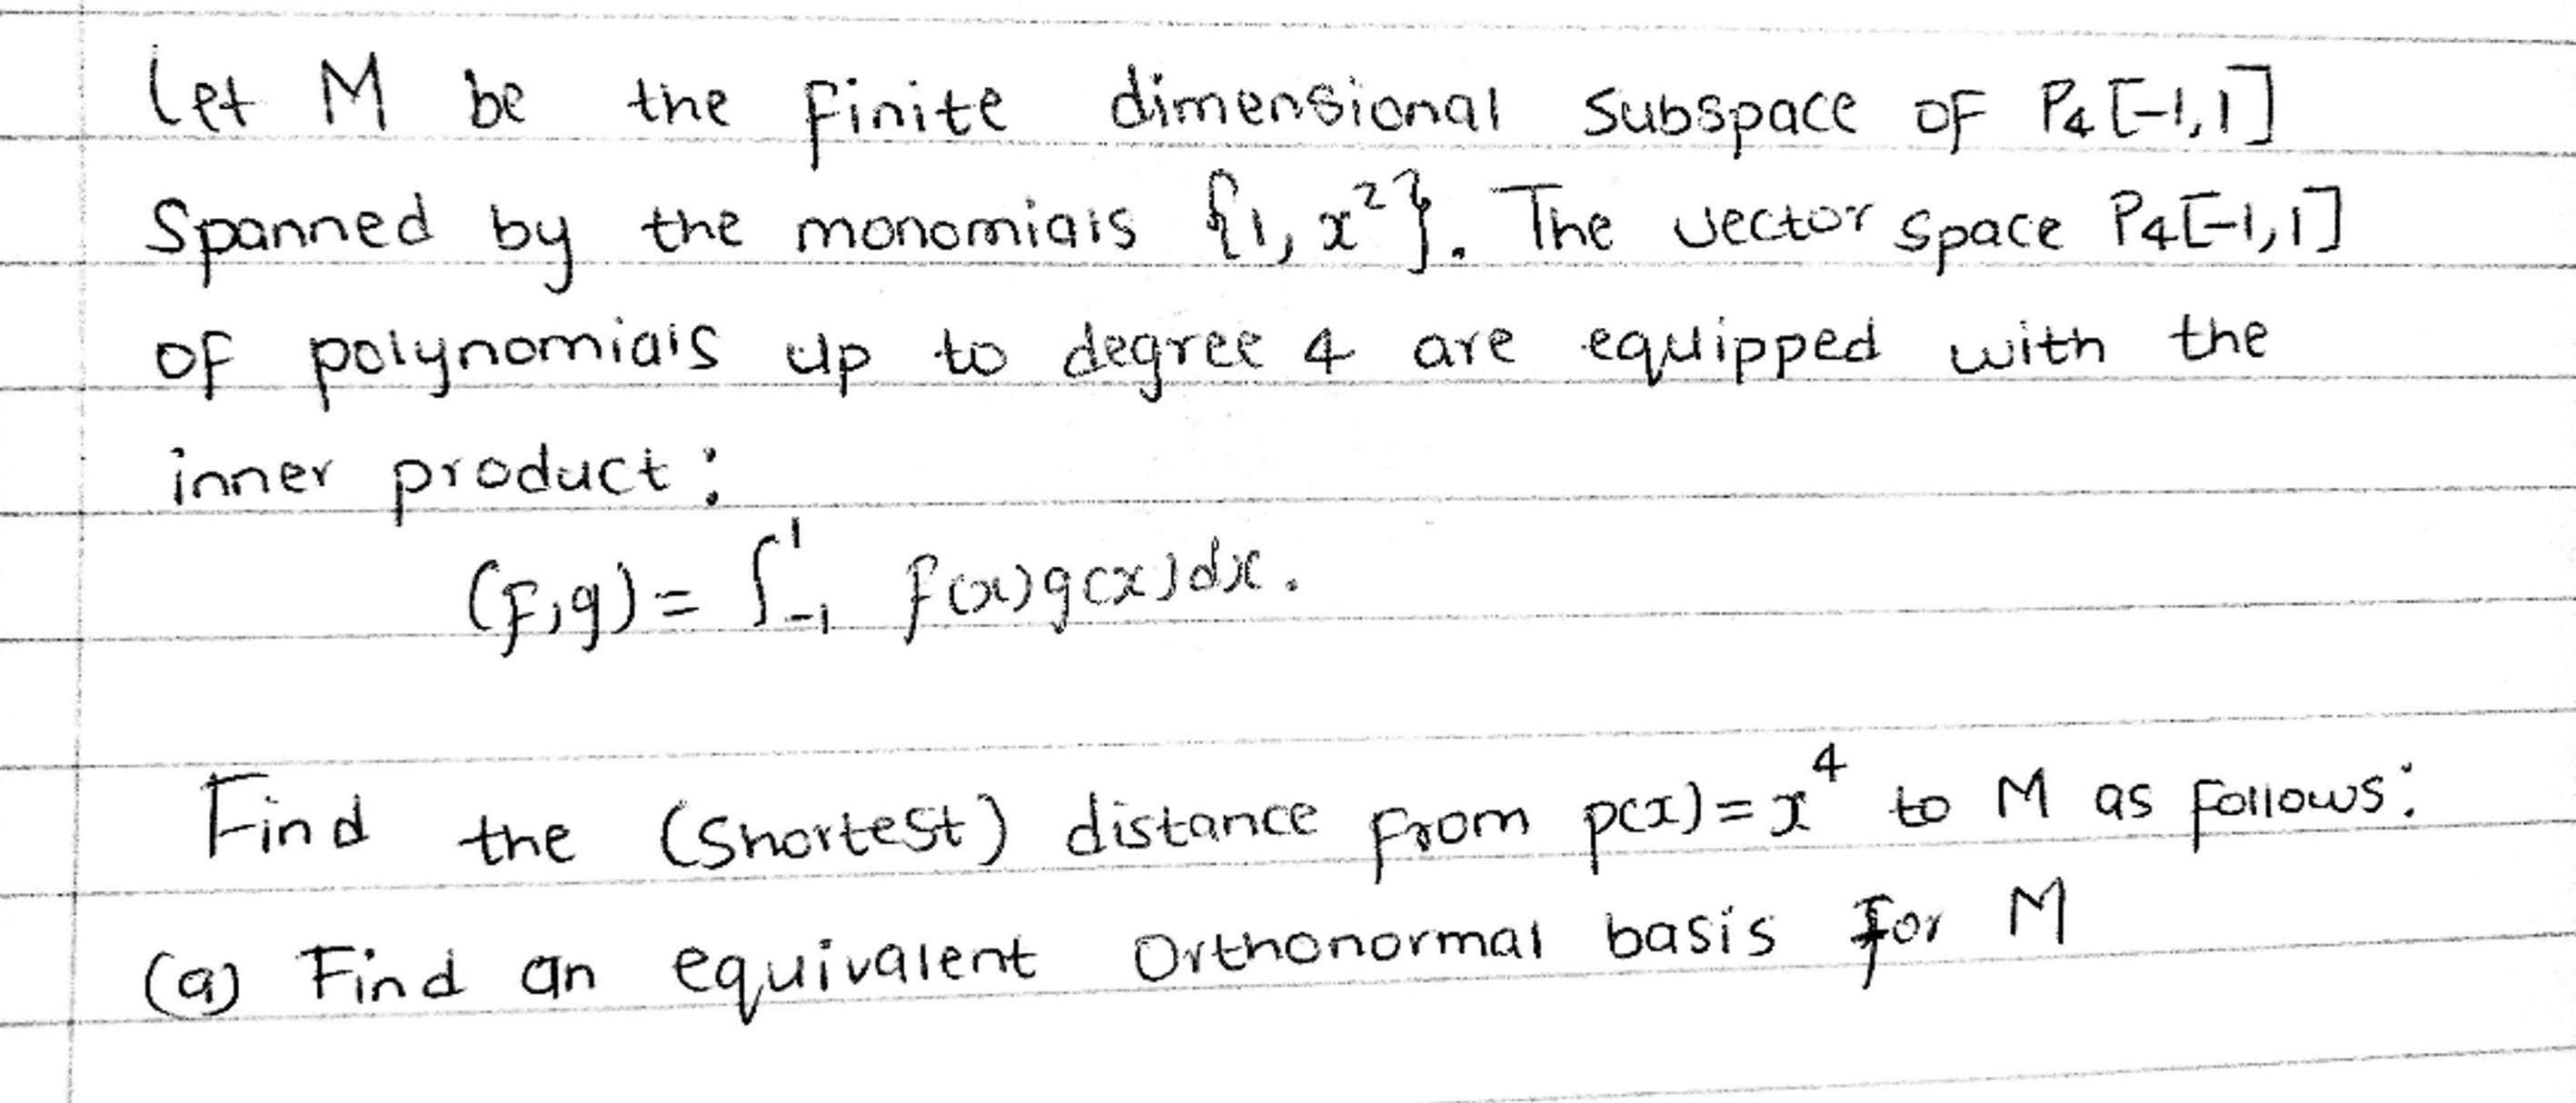 Let M be the finite dimensional subspace of P₄[-1,1]
Spanned by the monomials {1, x²}. The vector space P₄[-1,1]
of polynomials up to degree 4 are equipped with the
inner product:
(f,g) = ∫₋₁¹ f(x)g(x)dx.
Find the (shortest) distance from p(x)=x⁴ to M as follows:
(a) Find an equivalent orthonormal basis for M